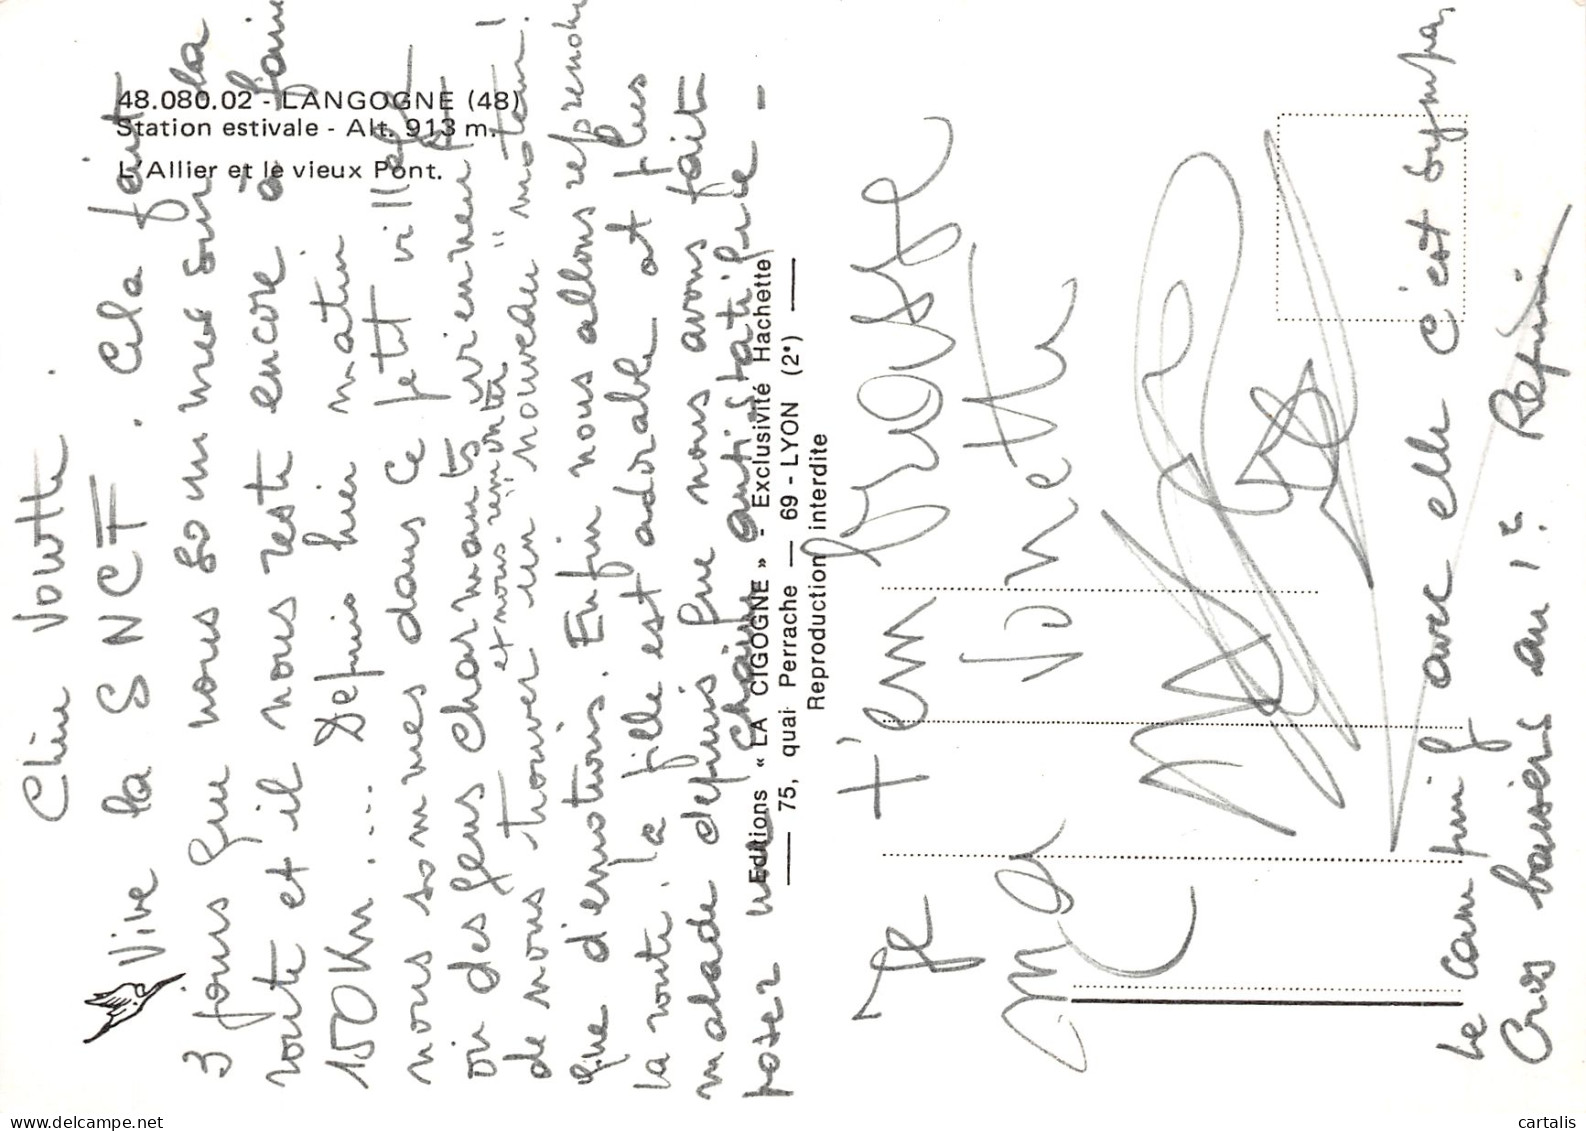 48.080.02 - LANGOGNE (48)
Station estivale - Alt. 913 m.
L'Allier et le vieux Pont.
Chère Youtte.
Vive la SNCF. Cela fait
3 jours que nous sommes sur la
route et il nous reste encore à faire
150 Km.... Depuis hier matin
nous sommes dans ce petit village
où des gens charmants viennent
et nous "remonté"
de nous trouver un nouveau "moteur"!
que d'emotions. Enfin nous allons reprendre
la route. la fille est adorable et plus
malade depuis que nous avons fait
poser une chaine antistatique -
Editions « LA CIGOGNE » - Exclusivité Hachette
75, quai Perrache — 69 - LYON (2e)
Reproduction interdite
Je t'embrasse
ma
le camping avec elle c'est sympa,
Gros baisers au 1er